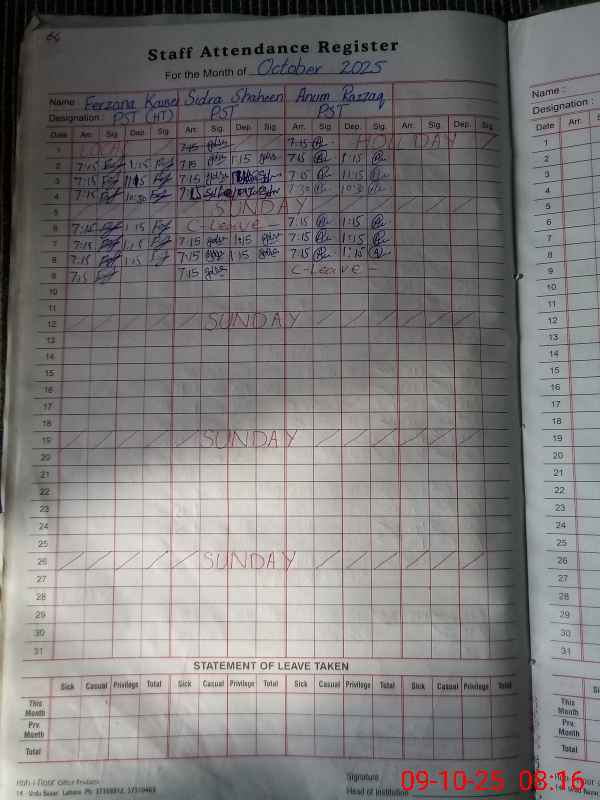 64
Staff Attendance Register
For the Month of October 2025
Name : Ferzana Kausar Sidra Shaheen Anum Razzaq
Designation : PST (HT) PST PST
Date Arr. Sig. Dep. Sig. Arr. Sig. Dep. Sig. Arr. Sig. Dep. Sig. Arr. Sig. Dep. Sig.
1 LOCAL 7:45 7:15 HOLIDAY
2 7:15 1:15 7:15 1:15 7:15 1:15
3 7:15 1:15 7:15 7:15 11:15
4 7:15 10:30 7:15 7:30 10:30
5 SUNDAY
6 7:15 1:15 C-Leave 7:15 1:15
7 7:15 1:15 7:15 1:15 7:15 1:15
8 7:15 1:15 7:15 1:15 7:15 1:15
9 7:15 7:15 C-Leave
10
11
12 SUNDAY
13
14
15
16
17
18
19 SUNDAY
20
21
22
23
24
25
26 SUNDAY
27
28
29
30
31
STATEMENT OF LEAVE TAKEN
Sick Casual Privilege Total Sick Casual Privilege Total Sick Casual Privilege Total Sick Casual Privilege Total
This Month
Prv. Month
Total
Signature
Head of Institution
14 - Urdu Bazar, Lahore
09-10-25 08:16
Name :
Designation :
Date Arr. Sig.
1
2
3
4
5
6
7
8
9
10
11
12
13
14
15
16
17
18
19
20
21
22
23
24
25
26
27
28
29
30
31
Sick
This Month
Prv. Month
Total